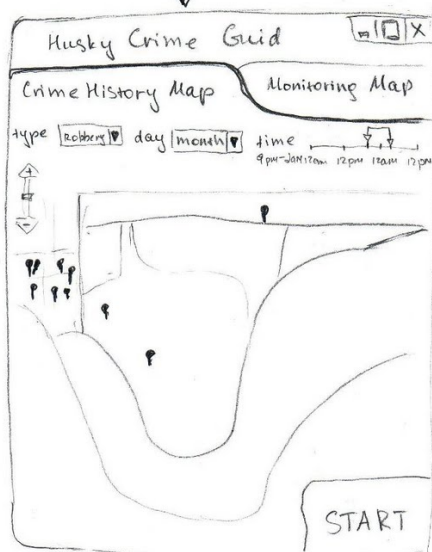 Husky Crime Guid
Crime History Map
Monitoring Map
type Robbery day month time
12am 12pm 12am 12pm
+
-
START